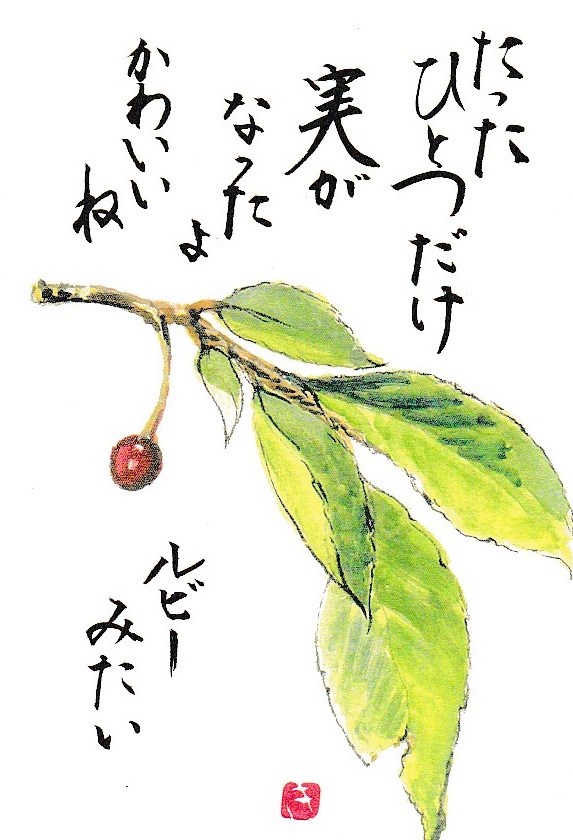 たった
ひとつだけ
実が
なった
よ
かわいい
ね
ルビー
みたい